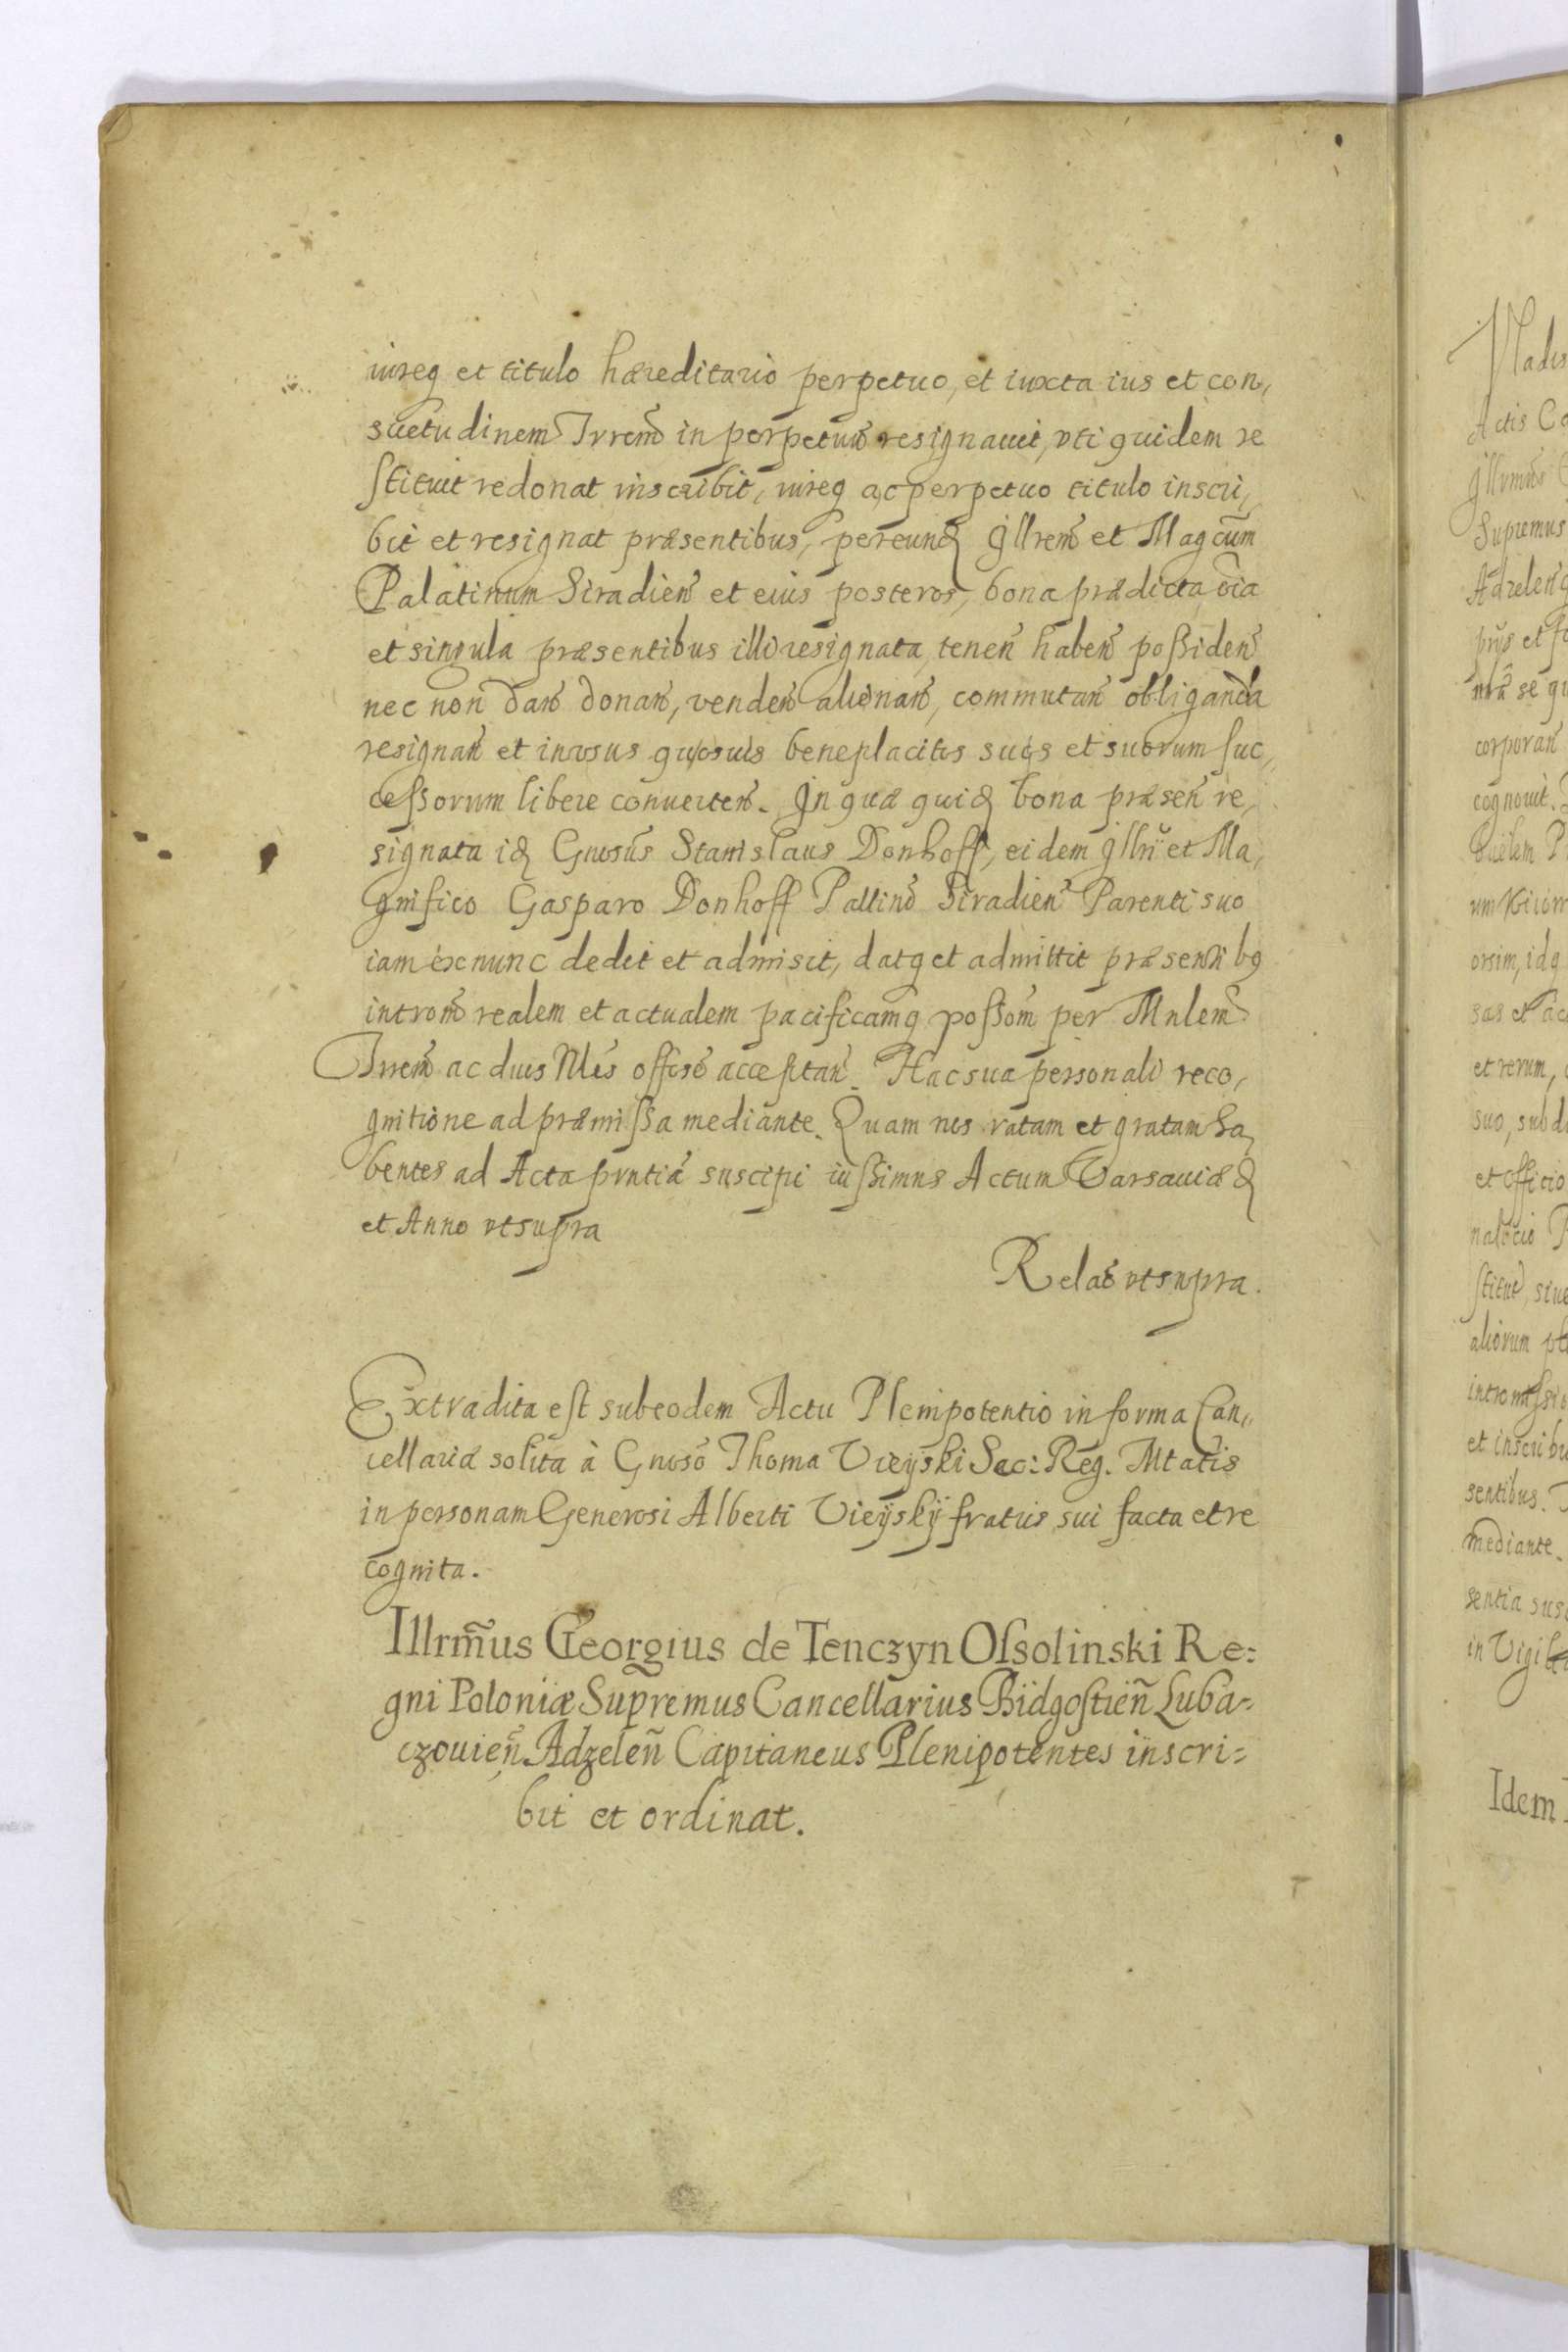 iureq et titulo hæreditario perpetuo, et iuxta ius et con,
suetudinem Trrem̃ in perpetuũ resignauit, vti quidem re
stituit redonat inscribit, iureq ac perpetuo titulo inscri,
bit et resignat præsentibus, per eund Illrem̃ et Magcum
Palatinum Siradien̄ et eius posteros, bona prædicta oĩa
et singula præsentibus illi resignata, tenen̄ haben̄ possiden̄
nec non dan̄ donan̄, venden̄ alienan̄, commutan̄ obliganda
resignan̄ et in vsus quosuis beneplacitos suos et suorum suc,
cessorum libere conuerten̄. In quæ quid bona præsen̄ re,
signata id Gnosus Stanislaus Donhoff, eidem Illri et Ma,
gnifico Gasparo Donhoff Pallino Siradien̄ Parenti suo
iam ex nunc dedit et admisit, datq et admittit præsentibq
introm̄ realem et actualem pacificamq possom̄ per Mnlem
Trrem̄ ac duos Nłes officso acceptan̄. Hac sua personali reco,
gnitione ad præmissa mediante. Quam nos ratam et gratam ha,
bentes ad Acta pñtia suscipi iussimus Actum Varsauiæ d
et Anno vt supra
Relaõ vt supra.
Extradita est sub eodem Actu Plenipotentio in forma Can,,
cellariæ solita à Gnoso Thoma Vieÿski Sec: Reg. Mtatis
in personam Generosi Alberti Vieÿskÿ fratris sui facta et re
cognita.
Illrm̃us Georgius de Tenczyn Ossolinski Re:
gni Poloniæ Supremus Cancellarius Bidgostien̄ Luba-
czouien̄ Adzelen̄ Capitaneus Plenipotentes inscri=
bit et ordinat.
Actis
Supremus
corporan̄
et rerum,
et Officio
aliorum
sentibus.
mediante.
Idem